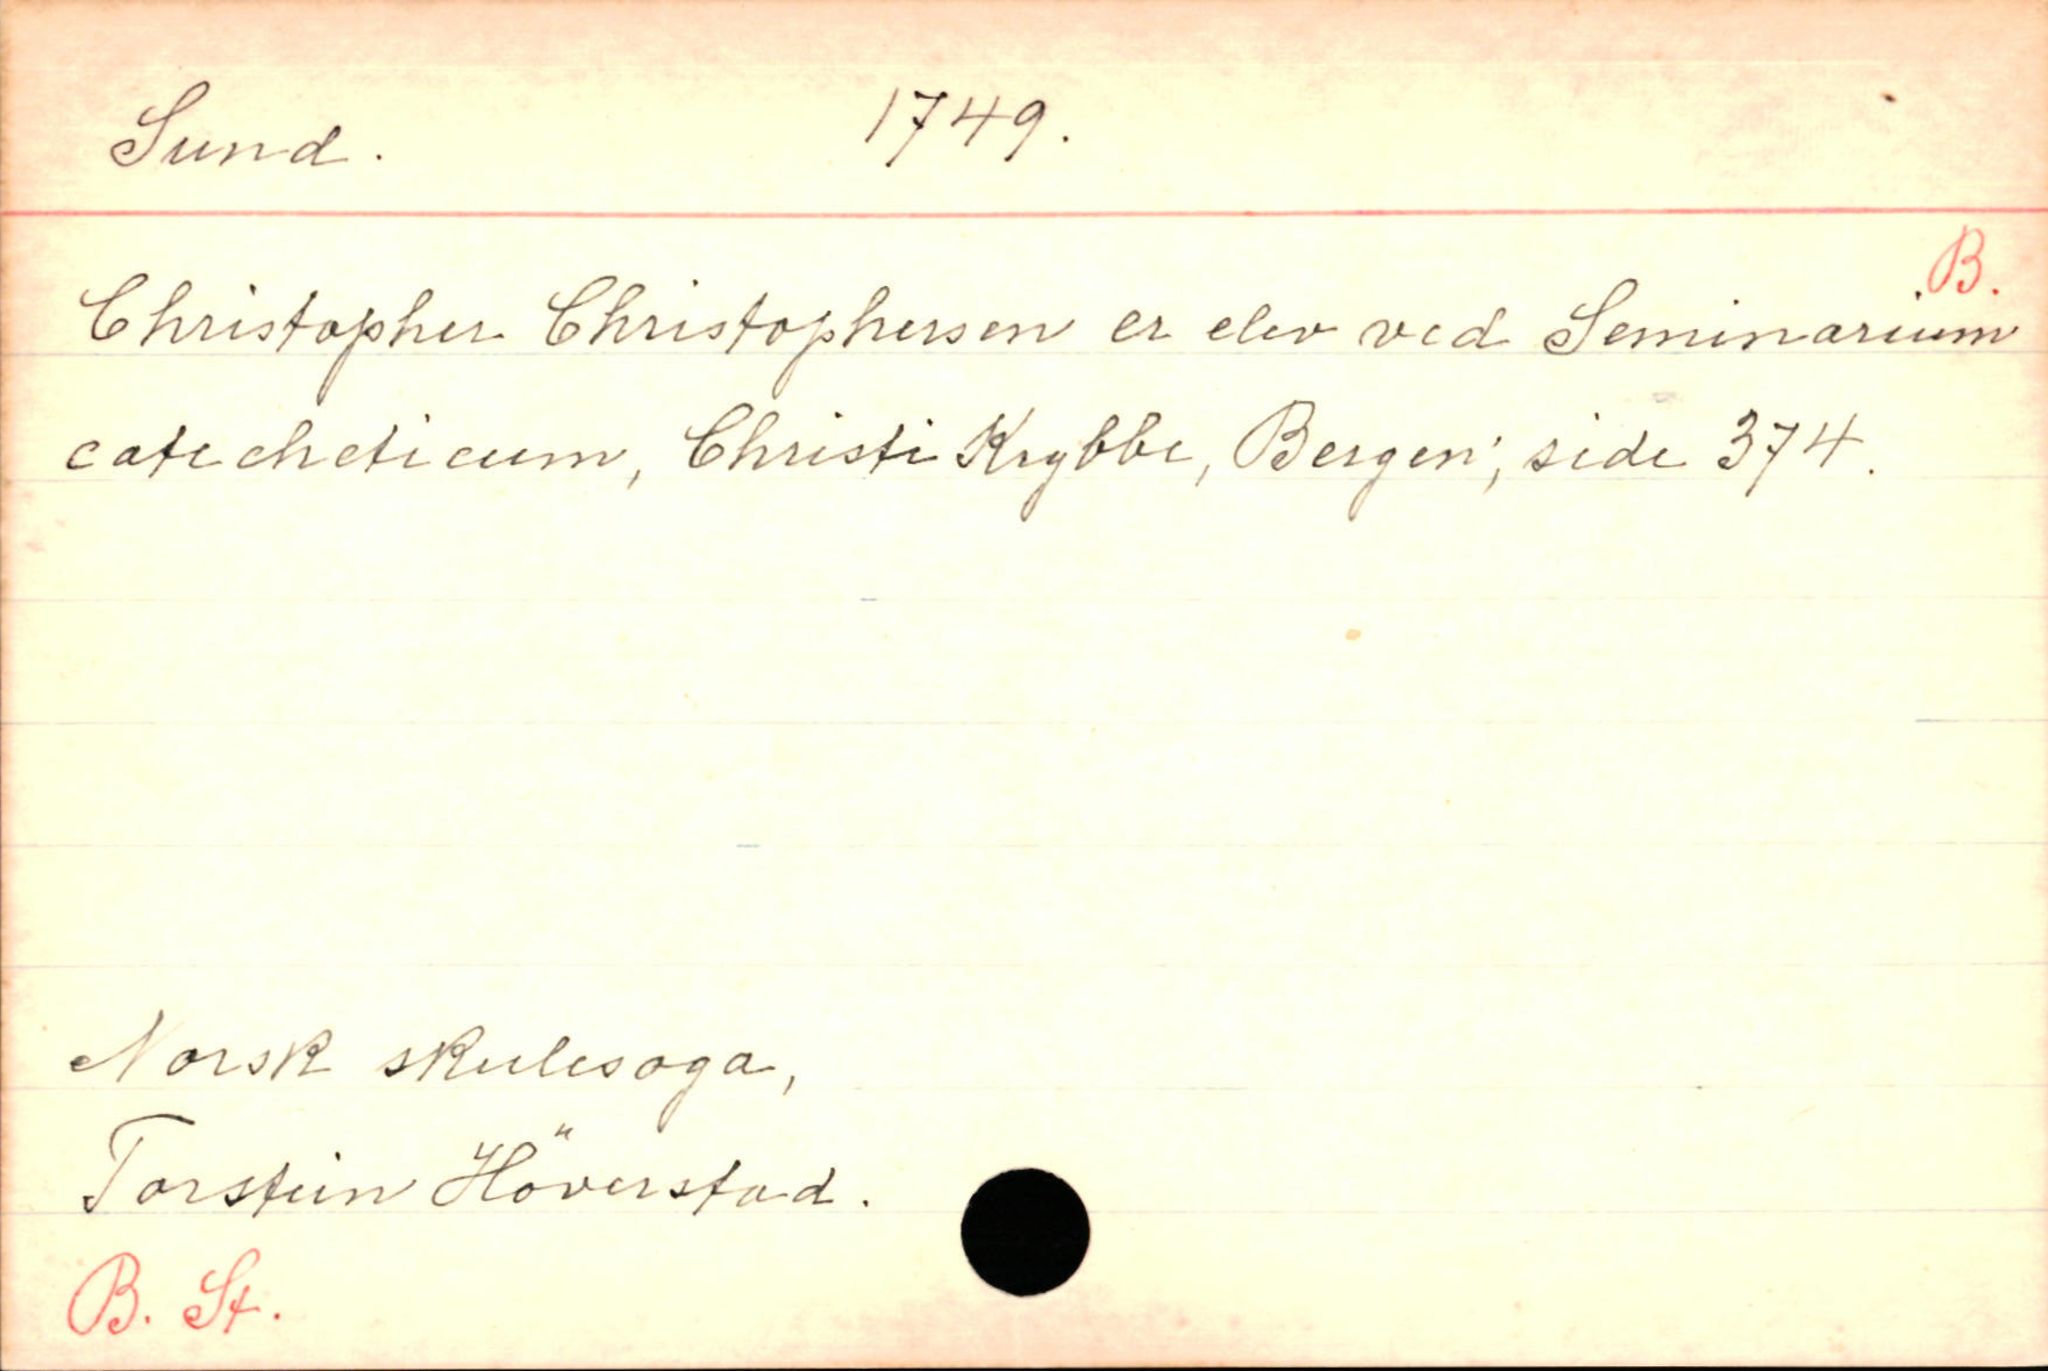 Sund. 1749.
B.
Christopher Christophersen er elev ved Seminarium
catecheticum, Christi Krybbe, Bergen; side 374.
Norsk skulesoga,
Torstein Höverstad.
B. St.